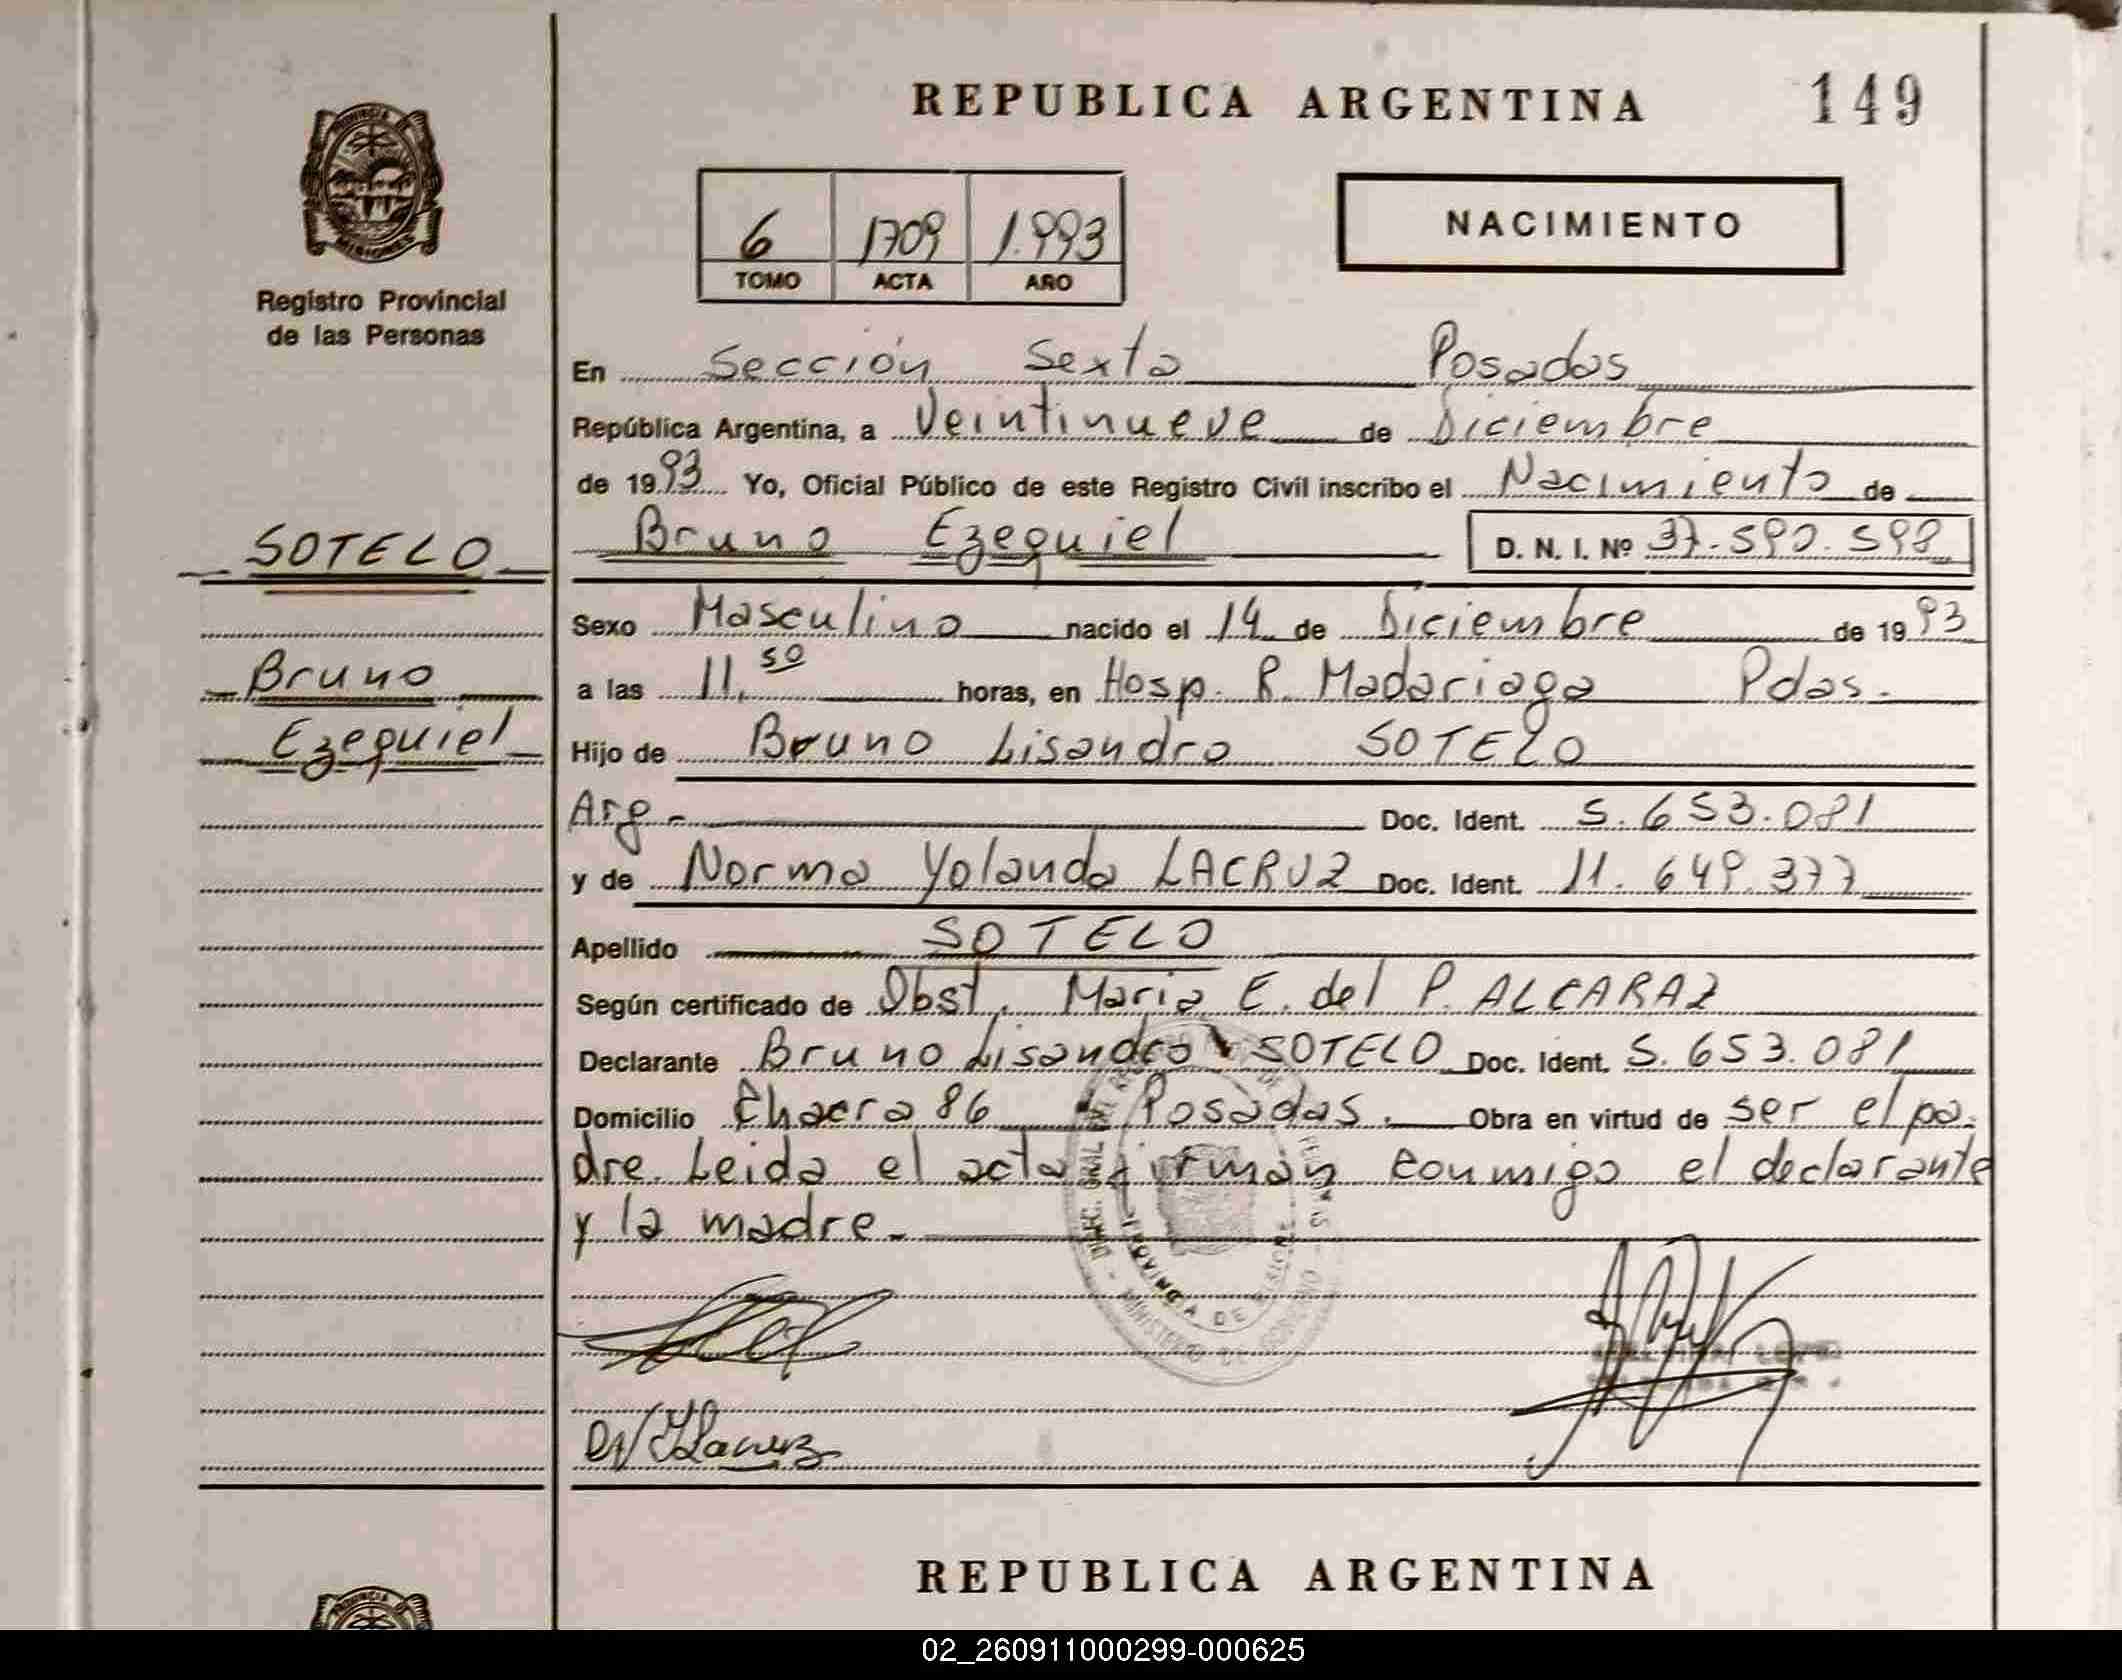 REPUBLICA ARGENTINA 149
PROVINCIA DE
MISIONES
Registro Provincial
de las Personas
6 1709 1.993
TOMO ACTA AÑO
NACIMIENTO
En Sección Sexta Posadas
República Argentina, a Veintinueve de Diciembre
de 1993 Yo, Oficial Público de este Registro Civil inscribo el Nacimiento de
Bruno Ezequiel D. N. I. Nº 37.590.598
SOTELO
Bruno
Ezequiel
Sexo Masculino nacido el 14 de Diciembre de 1993
a las 11,50 horas, en Hosp. R. Madariaga Pdas.
Hijo de Bruno Lisandro SOTELO
Arg. Doc. Ident. 5.653.081
y de Norma Yolanda LACRUZ Doc. Ident. 11.649.377
Apellido SOTELO
Según certificado de Obst. Maria E. del P. ALCARAZ
Declarante Bruno Lisandro SOTELO Doc. Ident. 5.653.081
Domicilio Chacra 86 Posadas. Obra en virtud de ser el pa-
dre. Leida el acta firman conmigo el declarante
y la madre.-
PROVINCIA DE MISIONES
MINISTERIO DE GOBIERNO
REPUBLICA ARGENTINA
02_260911000299-000625